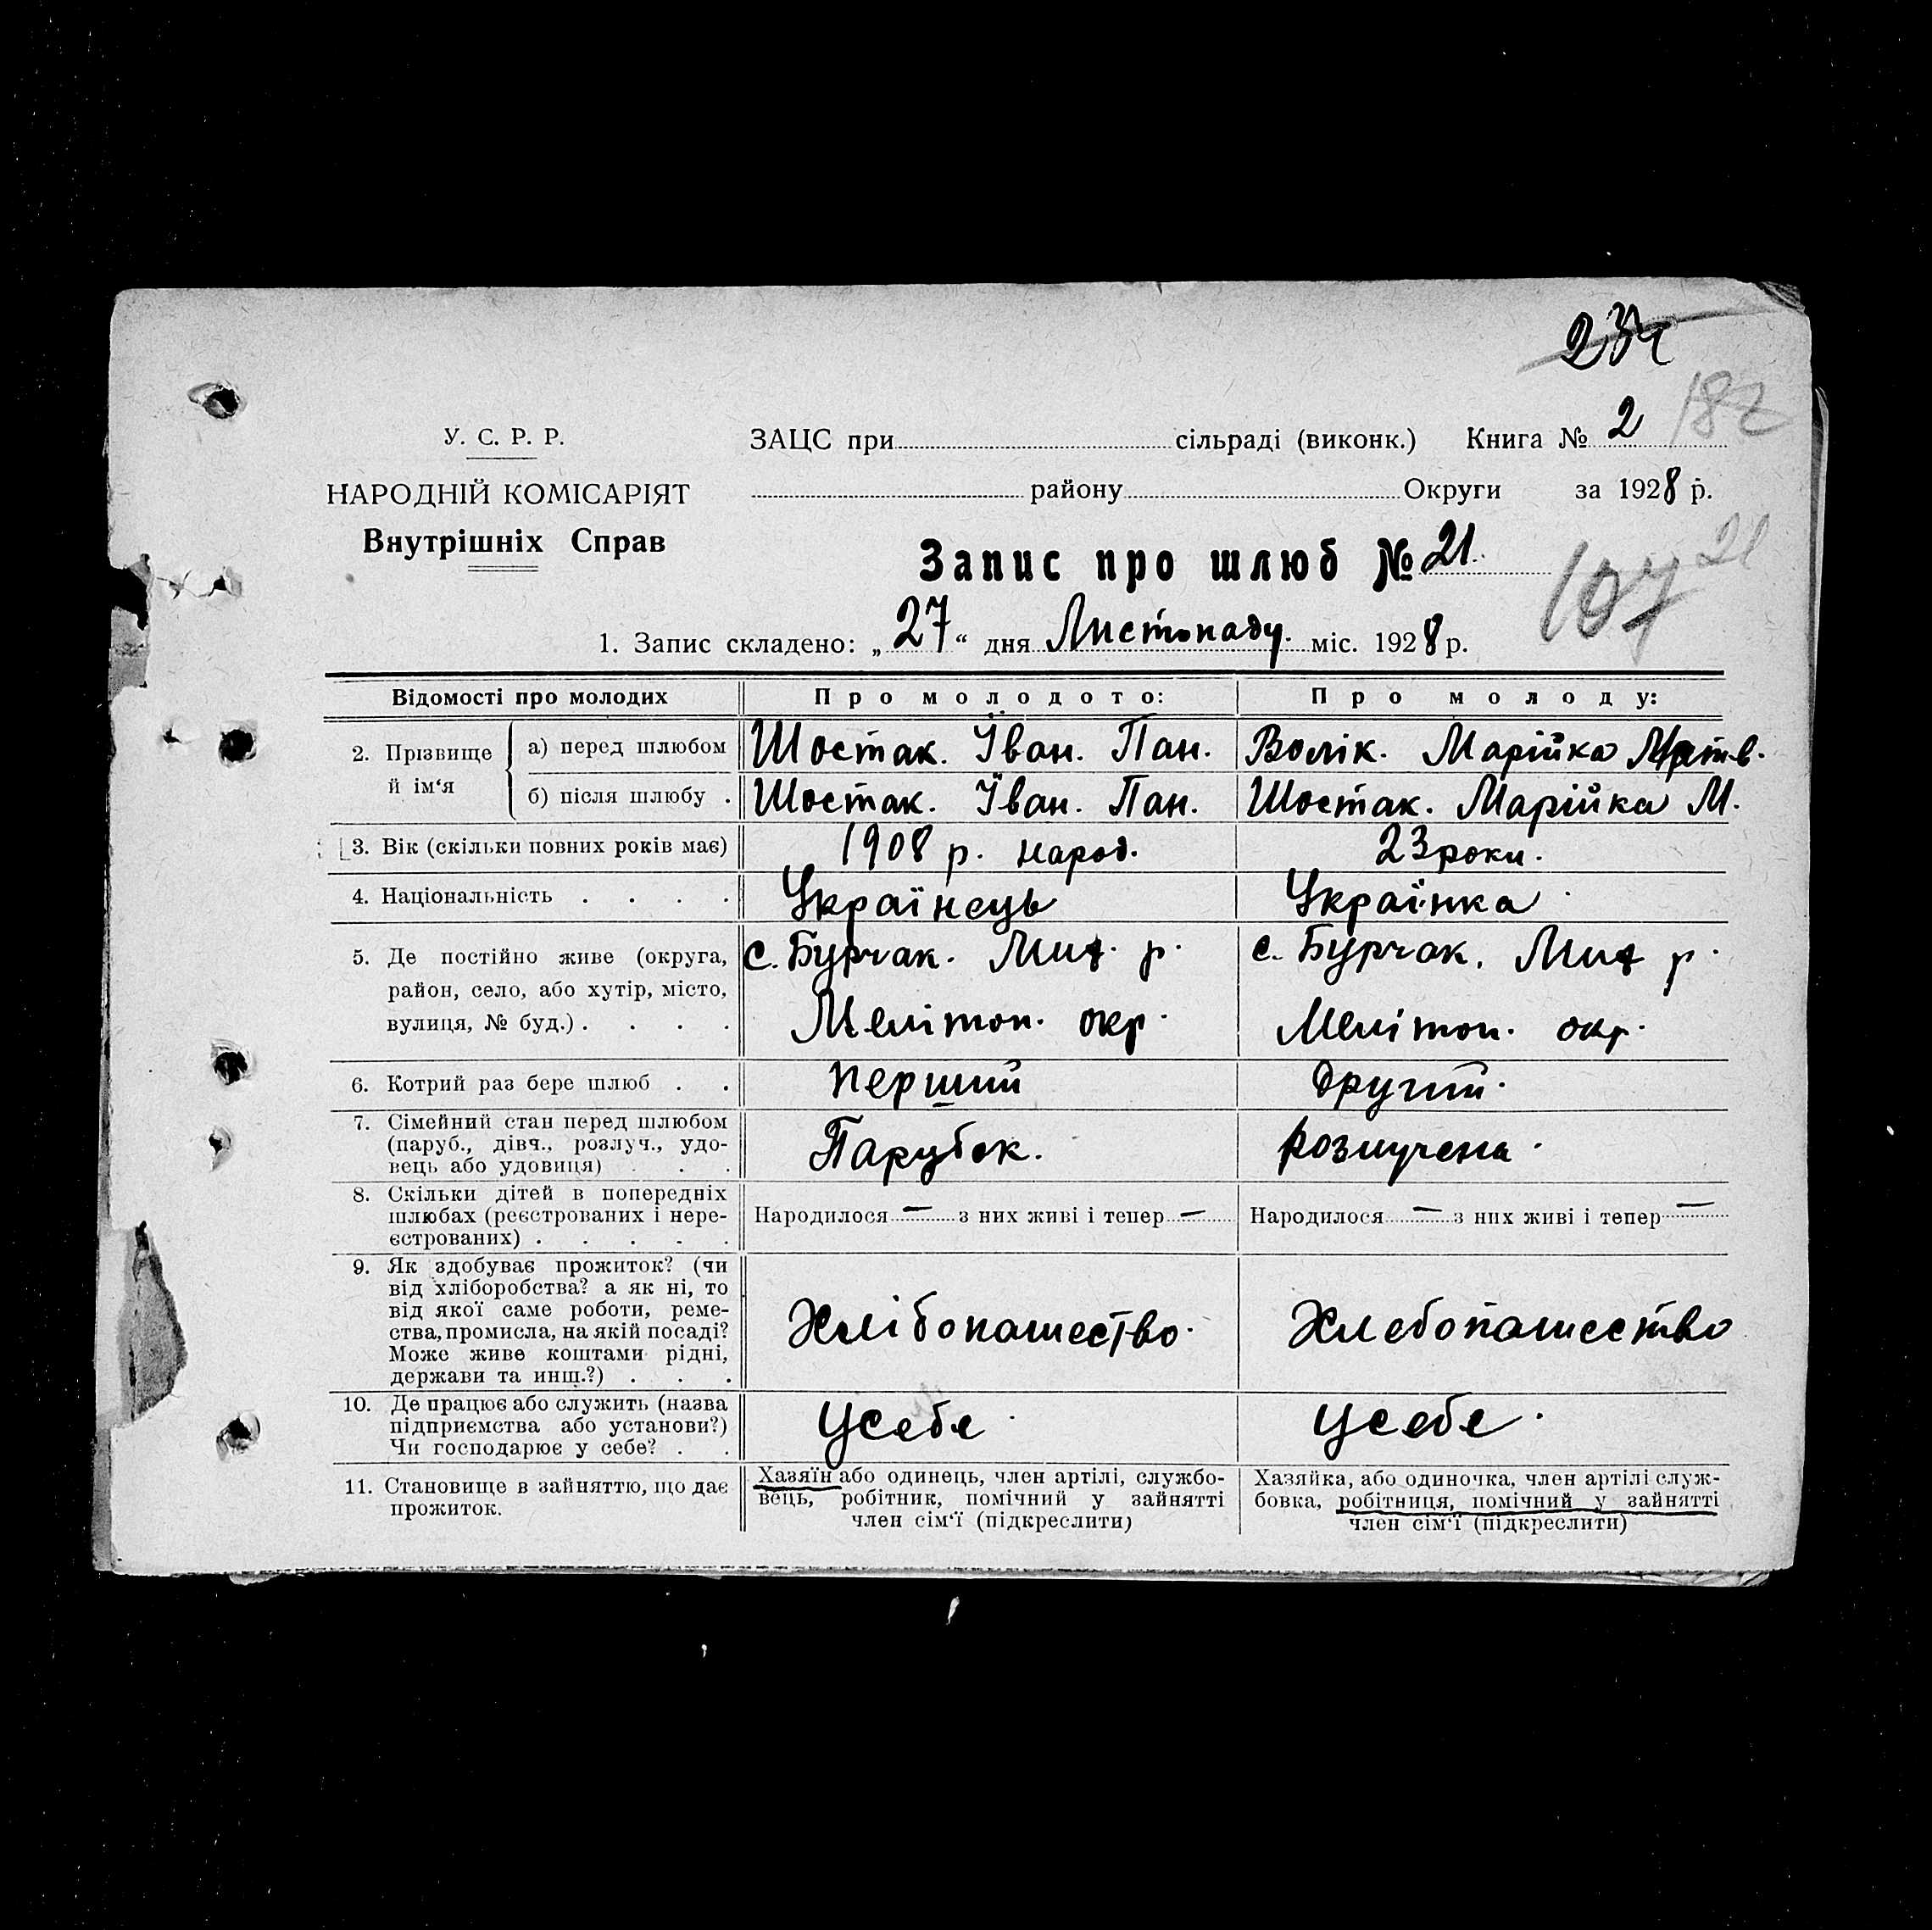 234
182
У. С. Р. Р.
НАРОДНІЙ КОМІСАРІЯТ
Внутрішніх Справ
ЗАЦС при сільраді (виконк.) Книга № 2
району Округи за 1928 р.
Запис про шлюб № 21.
107 21
1. Запис складено: „27“ дня Листопаду. міс. 1928 р.
Відомості про молодих Про молодого: Про молоду:
2. Прізвище й ім‘я
а) перед шлюбом Шостак. Їван. Пан. Волік. Марійка Матв.
б) після шлюбу . Шостак. Їван. Пан. Шостак. Марійка М.
3. Вік (скільки повних років має) 1908 р. народ. 23 роки.
4. Національність . . . . Українець Українка
5. Де постійно живе (округа,
район, село, або хутір, місто,
вулиця, № буд.) . . . .
с. Бурчак. Мих. р.
Мелітоп. окр.
с. Бурчак. Мих р.
Мелітоп. окр.
6. Котрий раз бере шлюб . . перший другий.
7. Сімейний стан перед шлюбом
(паруб., дівч., розлуч., удо-
вець або удовиця) . . .
Парубок.
Розлучена.
8. Скільки дітей в попередніх
шлюбах (реєстрованих і нере-
єстрованих) . . . . .
Народилося — з них живі і тепер —
Народилося — з них живі і тепер —
9. Як здобуває прожиток? (чи
від хліборобства? а як ні, то
від якої саме роботи, реме-
ства, промисла, на якій посаді?
Може живе коштами рідні,
держави та инщ.?) . . .
Хлібопашество.
Хлебопашество
10. Де працює або служить (назва
підприємства або установи?)
Чи господарює у себе? . .
Усебе.
Усебе.
11. Становище в зайняттю, що дає
прожиток.
Хазяїн або одинець, член артілі, службо-
вець, робітник, помічний у зайнятті
член сім‘ї (підкреслити)
Хазяйка, або одиночка, член артілі служ-
бовка, робітниця, помічний у зайнятті
член сім‘ї (підкреслити)